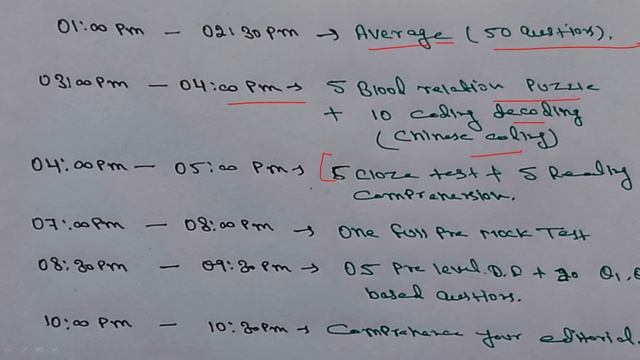 01:00 Pm - 02:30 Pm → Average (50 Questions).
03:00 Pm - 04:00 Pm → 5 Blood relation Puzzle
+ 10 coding decoding
(Chinese coding)
04:00 Pm - 05:00 Pm → 5 Cloze test + 5 Reading
Comprehension.
07:00 Pm - 08:00 Pm → One full Pre Mock Test
08:30 Pm - 09:30 Pm → 05 Pre level D.D + 20 Q,
based Questions.
10:00 Pm - 10:30 Pm → Comprehence your editorial.